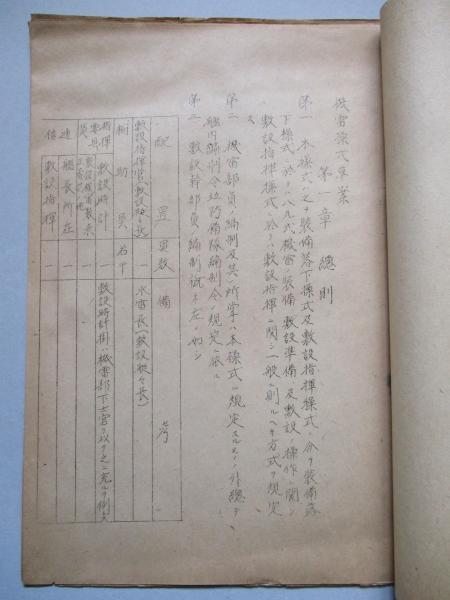 機雷操式草案
第一章 總則
第一 本操式ハ之ヲ裝備落下操式及敷設指揮操式ニ分ヲ裝備落
下操式ニ於テハ八九式機雷ノ裝備敷設準備及敷設ノ操作ニ関シ
敷設指揮操式ニ於テハ敷設指揮ニ関シ一般ニ則ルヘキ方式ヲ規定
ス
第二 機雷部員ノ編制及其ノ所掌ハ本操式ニ規定スルモノノ外總テ
艦内編制令竝防備隊編制令ノ規定ニ依ル
第三 敷設幹部員ノ編制概ネ左ノ如シ
配置 員数 備考
敷設指揮官(敷設科々長) 一 水雷長(敷設科々長)
附 助員 若干
敷設時計 一 敷設時計掛ハ機雷部下士官ヲ以テ之ニ充ルヲ例トス
艦長所在 一
敷設指揮 一